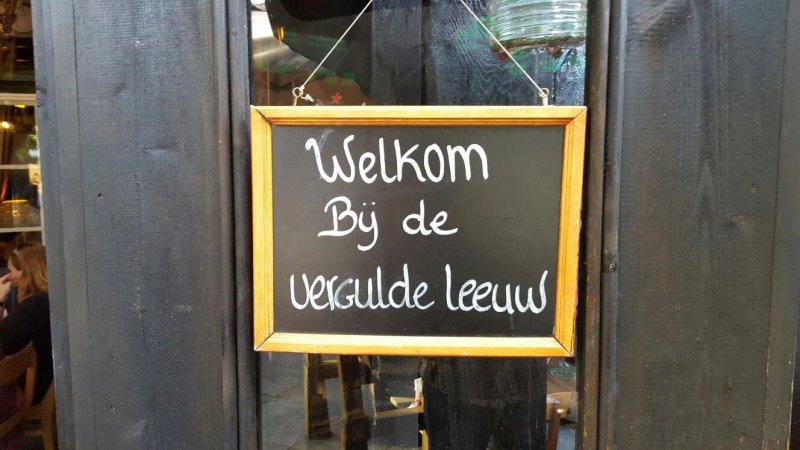 Welkom
Bij de
vergulde leeuw